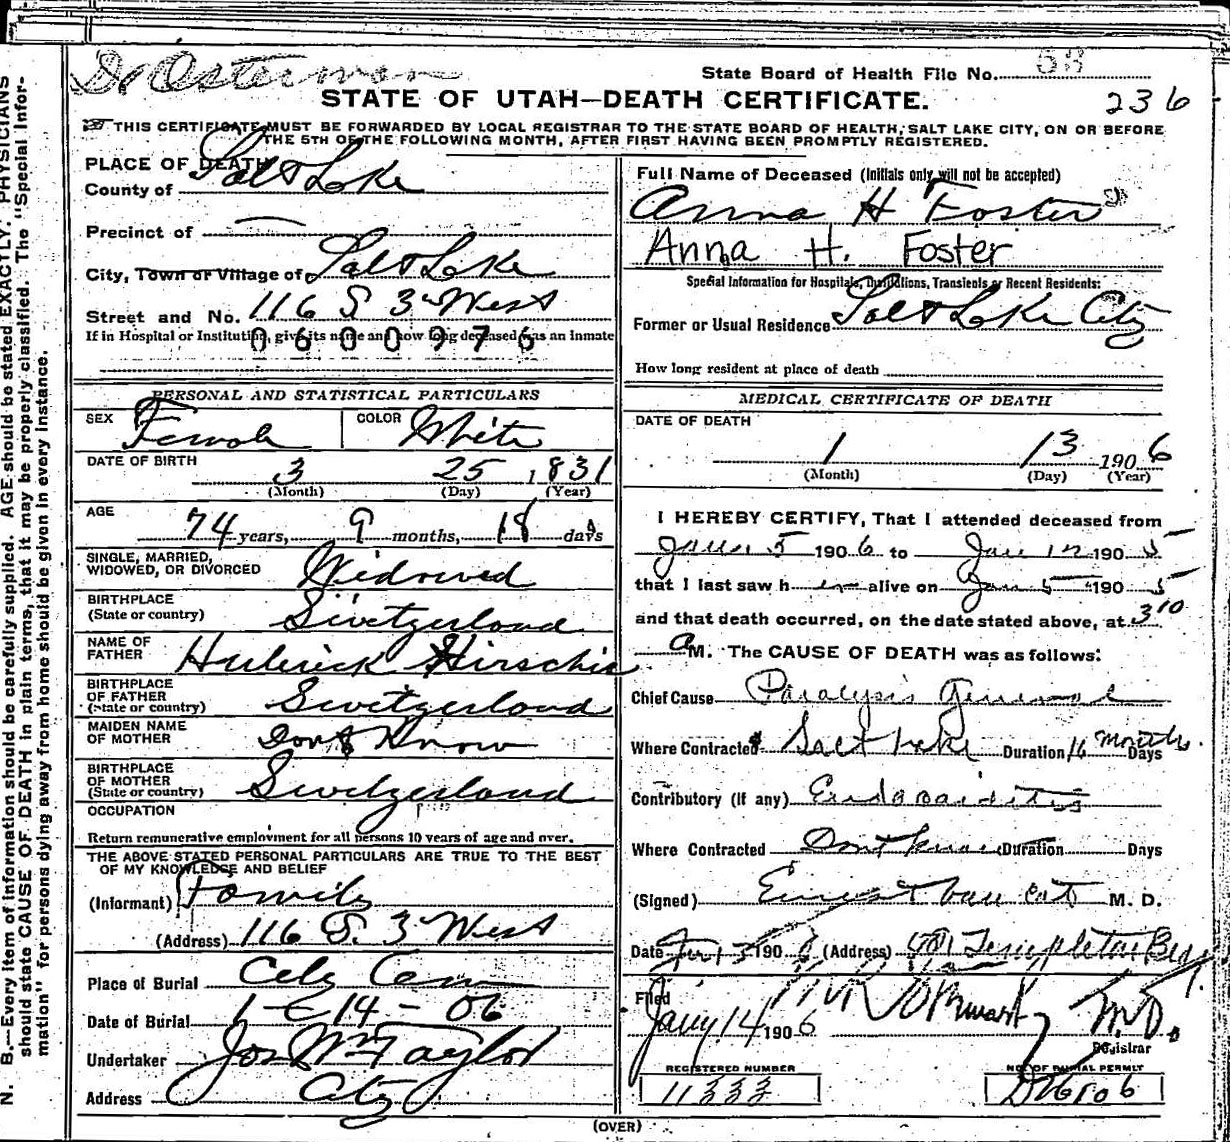 Dr Osterman
State Board of Health File No. 53
STATE OF UTAH—DEATH CERTIFICATE.
236
THIS CERTIFICATE MUST BE FORWARDED BY LOCAL REGISTRAR TO THE STATE BOARD OF HEALTH, SALT LAKE CITY, ON OR BEFORE
THE 5TH OF THE FOLLOWING MONTH, AFTER FIRST HAVING BEEN PROMPTLY REGISTERED.
PLACE OF DEATH
County of Salt Lake
Precinct of —
City, Town or Village of Salt Lake
Street and No. 116 S 3 West
If in Hospital or Institution, give its name and how long deceased was an inmate
0600976
PERSONAL AND STATISTICAL PARTICULARS
SEX Female COLOR White
DATE OF BIRTH
3 25 1831
(Month) (Day) (Year)
AGE
74 years, 9 months, 18 days
SINGLE, MARRIED,
WIDOWED, OR DIVORCED Widowed
BIRTHPLACE
(State or country) Switzerland
NAME OF
FATHER Hulerick Hirschi
BIRTHPLACE
OF FATHER
(State or country) Switzerland
MAIDEN NAME
OF MOTHER Dont Know
BIRTHPLACE
OF MOTHER
(State or country) Switzerland
OCCUPATION
Return remunerative employment for all persons 10 years of age and over.
THE ABOVE STATED PERSONAL PARTICULARS ARE TRUE TO THE BEST
OF MY KNOWLEDGE AND BELIEF
(Informant) Family
(Address) 116 S. 3 West
Place of Burial City Cem
Date of Burial 1-14-06
Undertaker Jos Wm Taylor
Address City
Full Name of Deceased (Initials only will not be accepted)
Anna H Foster
Anna H. Foster
Special Information for Hospitals, Institutions, Transients or Recent Residents:
Former or Usual Residence Salt Lake City
How long resident at place of death
MEDICAL CERTIFICATE OF DEATH
DATE OF DEATH
1 13 1906
(Month) (Day) (Year)
I HEREBY CERTIFY, That I attended deceased from
Jan 5 1906 to Jan 12 1905
that I last saw her alive on Jan 5 1905
and that death occurred, on the date stated above, at 3 10
a M. The CAUSE OF DEATH was as follows:
Chief Cause Paralysis General
Where Contracted Salt Lake Duration 16 months Days
Contributory (if any) Endocarditis
Where Contracted Dont know Duration Days
(Signed) Ernest Van Cot M. D.
Date Jan 13 1906 (Address) Templeton Bldg
Filed
Jany 14 1906 M.D.
Registrar
REGISTERED NUMBER
11333
NO. OF BURIAL PERMIT
D6106
(OVER)
N. B.—Every item of information should be carefully supplied. AGE should be stated EXACTLY. PHYSICIANS
should state CAUSE OF DEATH in plain terms, that it may be properly classified. The "Special Infor-
mation" for persons dying away from home should be given in every instance.